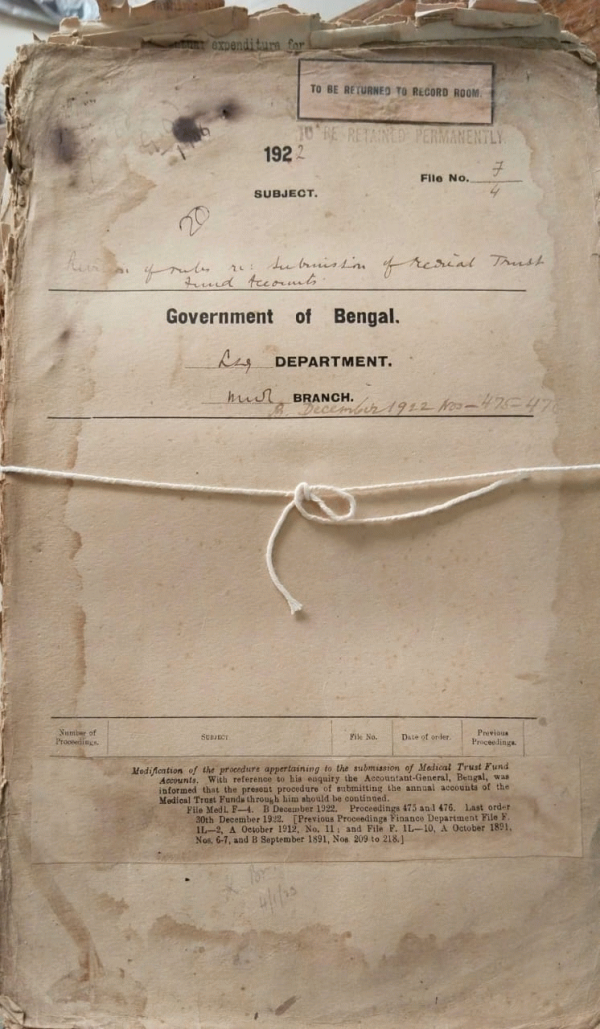 expenditure for
TO BE RETURNED TO RECORD ROOM.
TO BE RETAINED PERMANENTLY
1922
File No. 7/4
SUBJECT.
20
of rules re: Submission of Medical Trust
Fund Accounts.
Government of Bengal.
DEPARTMENT.
BRANCH.
B. December 1922 Nos—475-476
Number of Proceedings.
SUBJECT
File No.
Date of order.
Previous Proceedings.
Modification of the procedure appertaining to the submission of Medical Trust Fund
Accounts. With reference to his enquiry the Accountant-General, Bengal, was
informed that the present procedure of submitting the annual accounts of the
Medical Trust Funds through him should be continued.
File Medl. F—4. B December 1922. Proceedings 475 and 476. Last order
30th December 1922. [Previous Proceedings Finance Department File F.
1L—2, A October 1912, No. 11; and File F. 1L—10, A October 1891,
Nos. 6-7, and B September 1891, Nos. 209 to 218.]